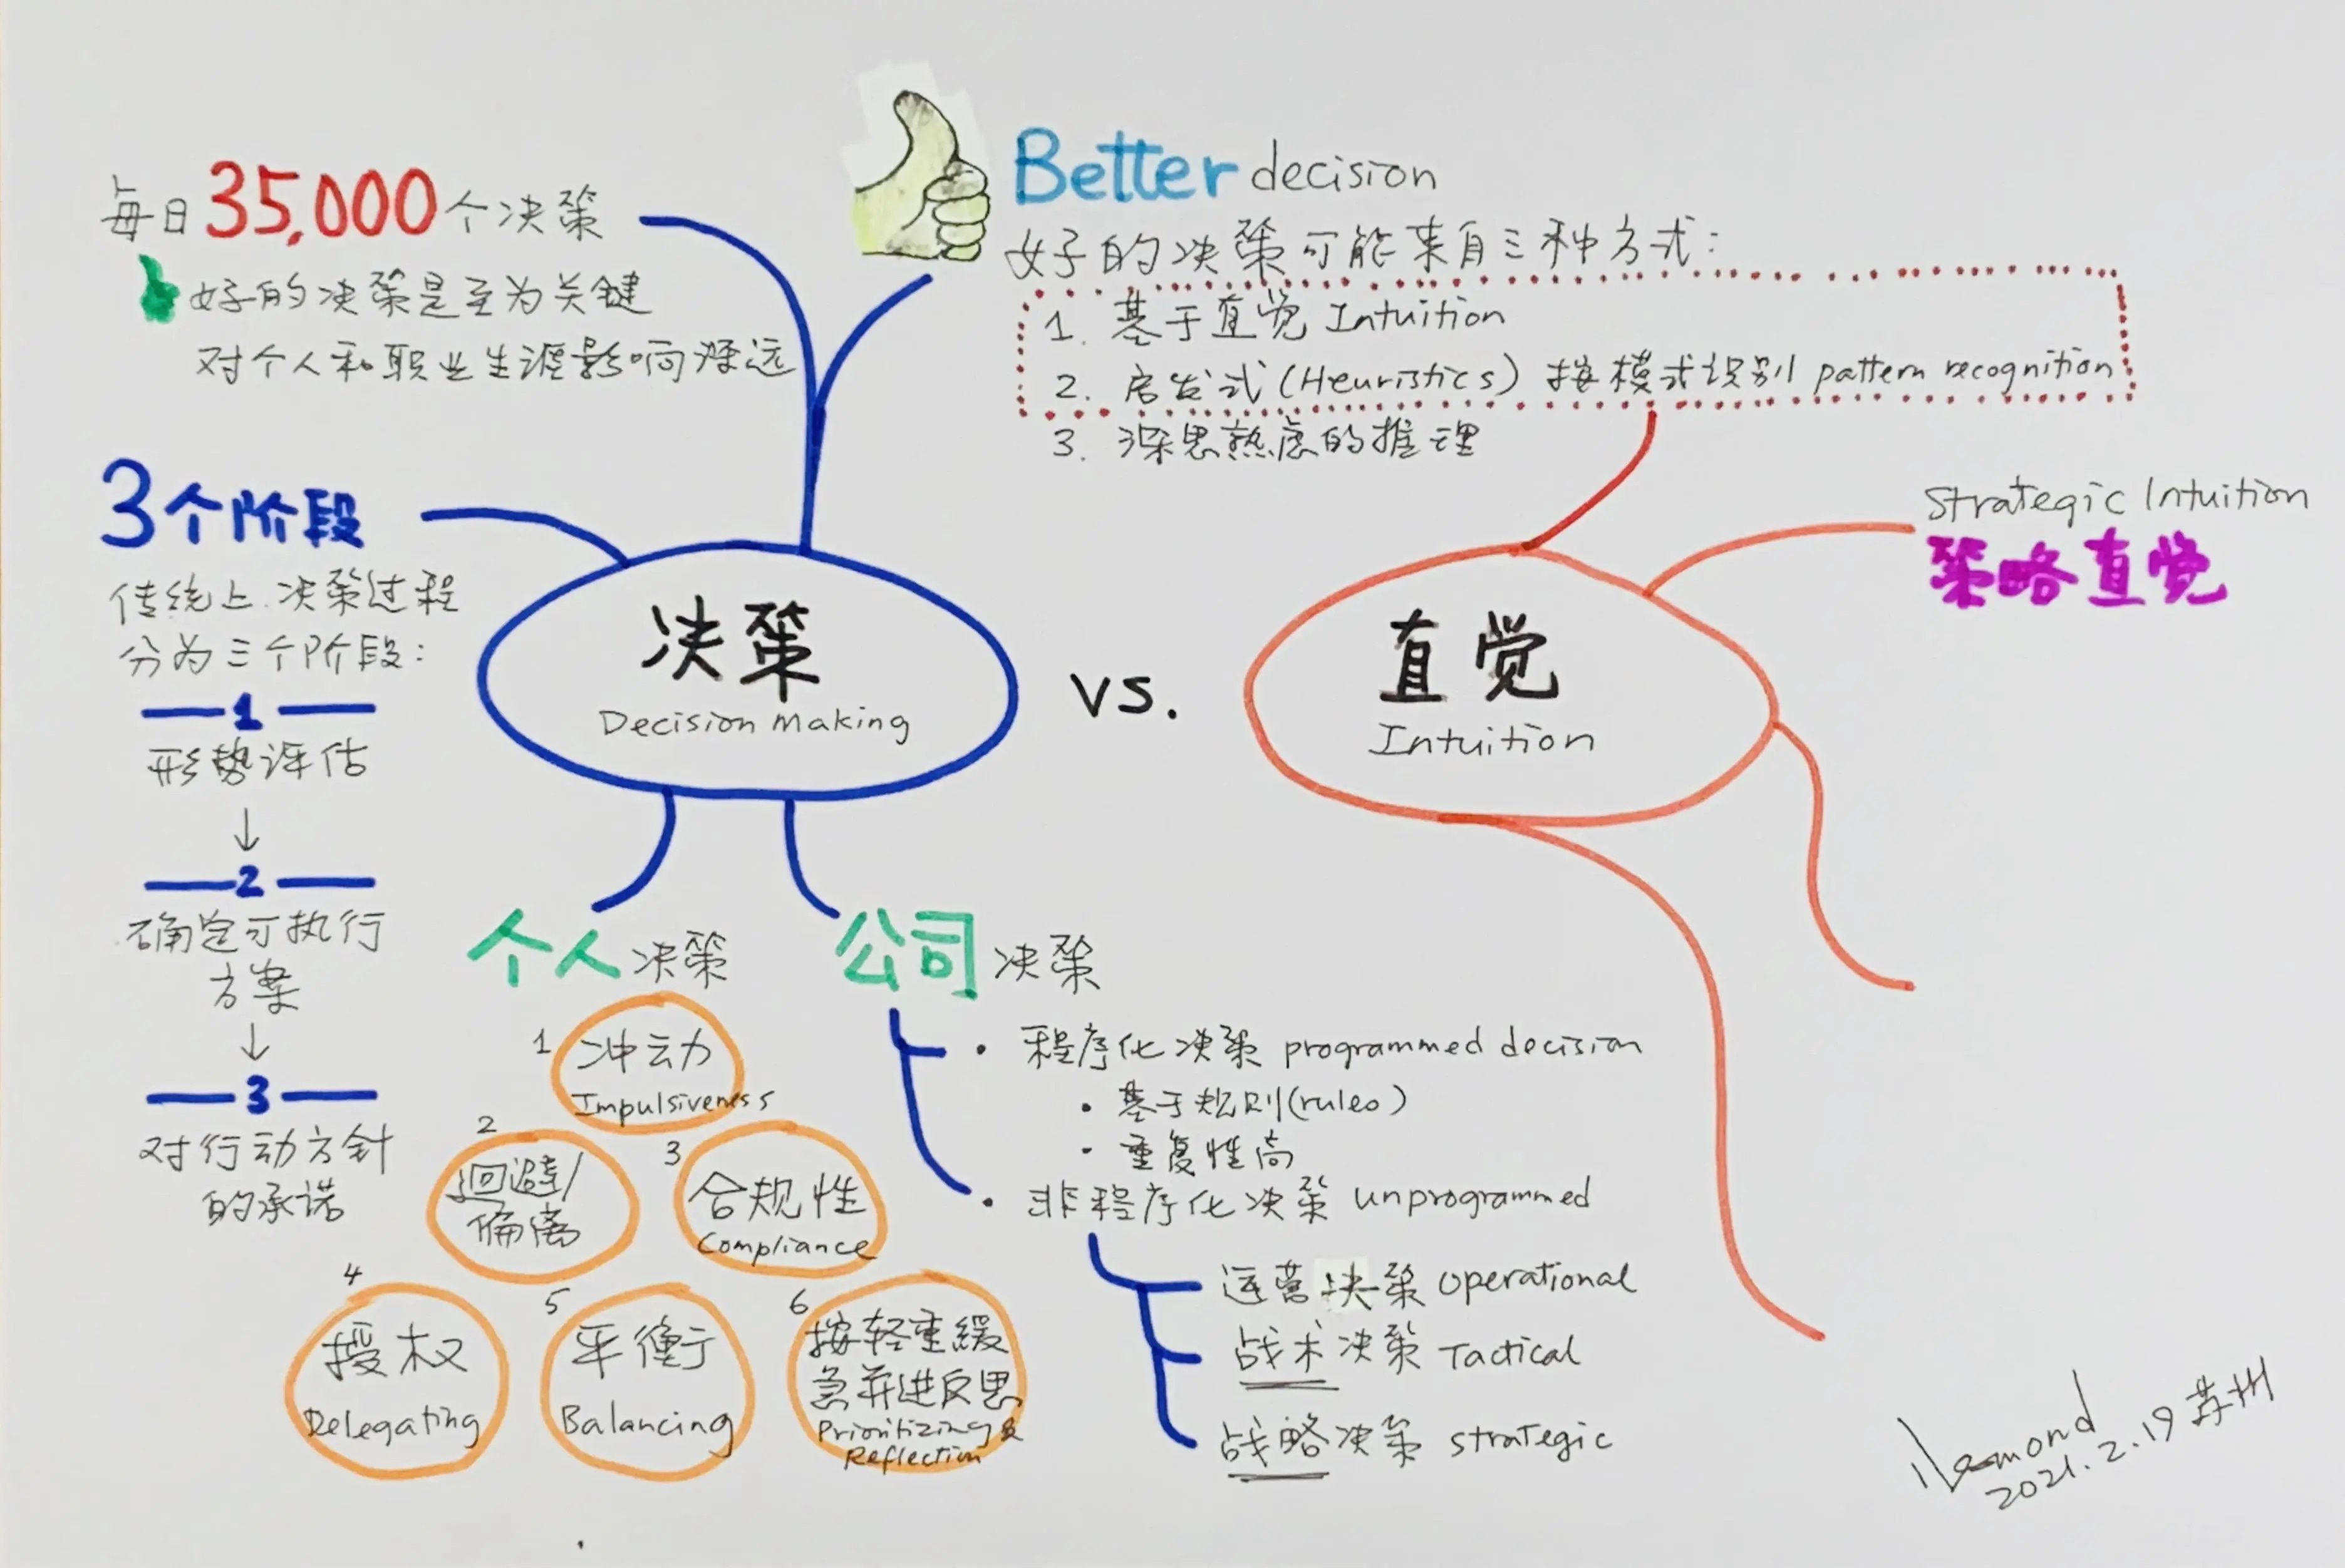 每日35,000个决策
好的决策是至为关键
对个人和职业生涯影响深远
Better decision
好的决策可能来自三种方式:
1. 基于直觉 Intuition
2. 启发式(Heuristics) 按模式识别 pattern recognition
3. 深思熟虑的推理
3个阶段
传统上决策过程
分为三个阶段:
1
形势评估
↓
2
确定可执行
方案
↓
3
对行动方针
的承诺
决策
Decision Making
vs.
直觉
Intuition
Strategic Intuition
策略直觉
个人决策
1 冲动
Impulsiveness
2 迴避/
偏离
3 合规性
Compliance
4 授权
Delegating
5 平衡
Balancing
6 按轻重緩
急并进反思
Prioritizing &
Reflection
公司决策
• 程序化决策 programmed decision
• 基于规则(rules)
• 重复性高
• 非程序化决策 unprogrammed
运营决策 Operational
战术决策 Tactical
战略决策 strategic
2021.2.19 苏州